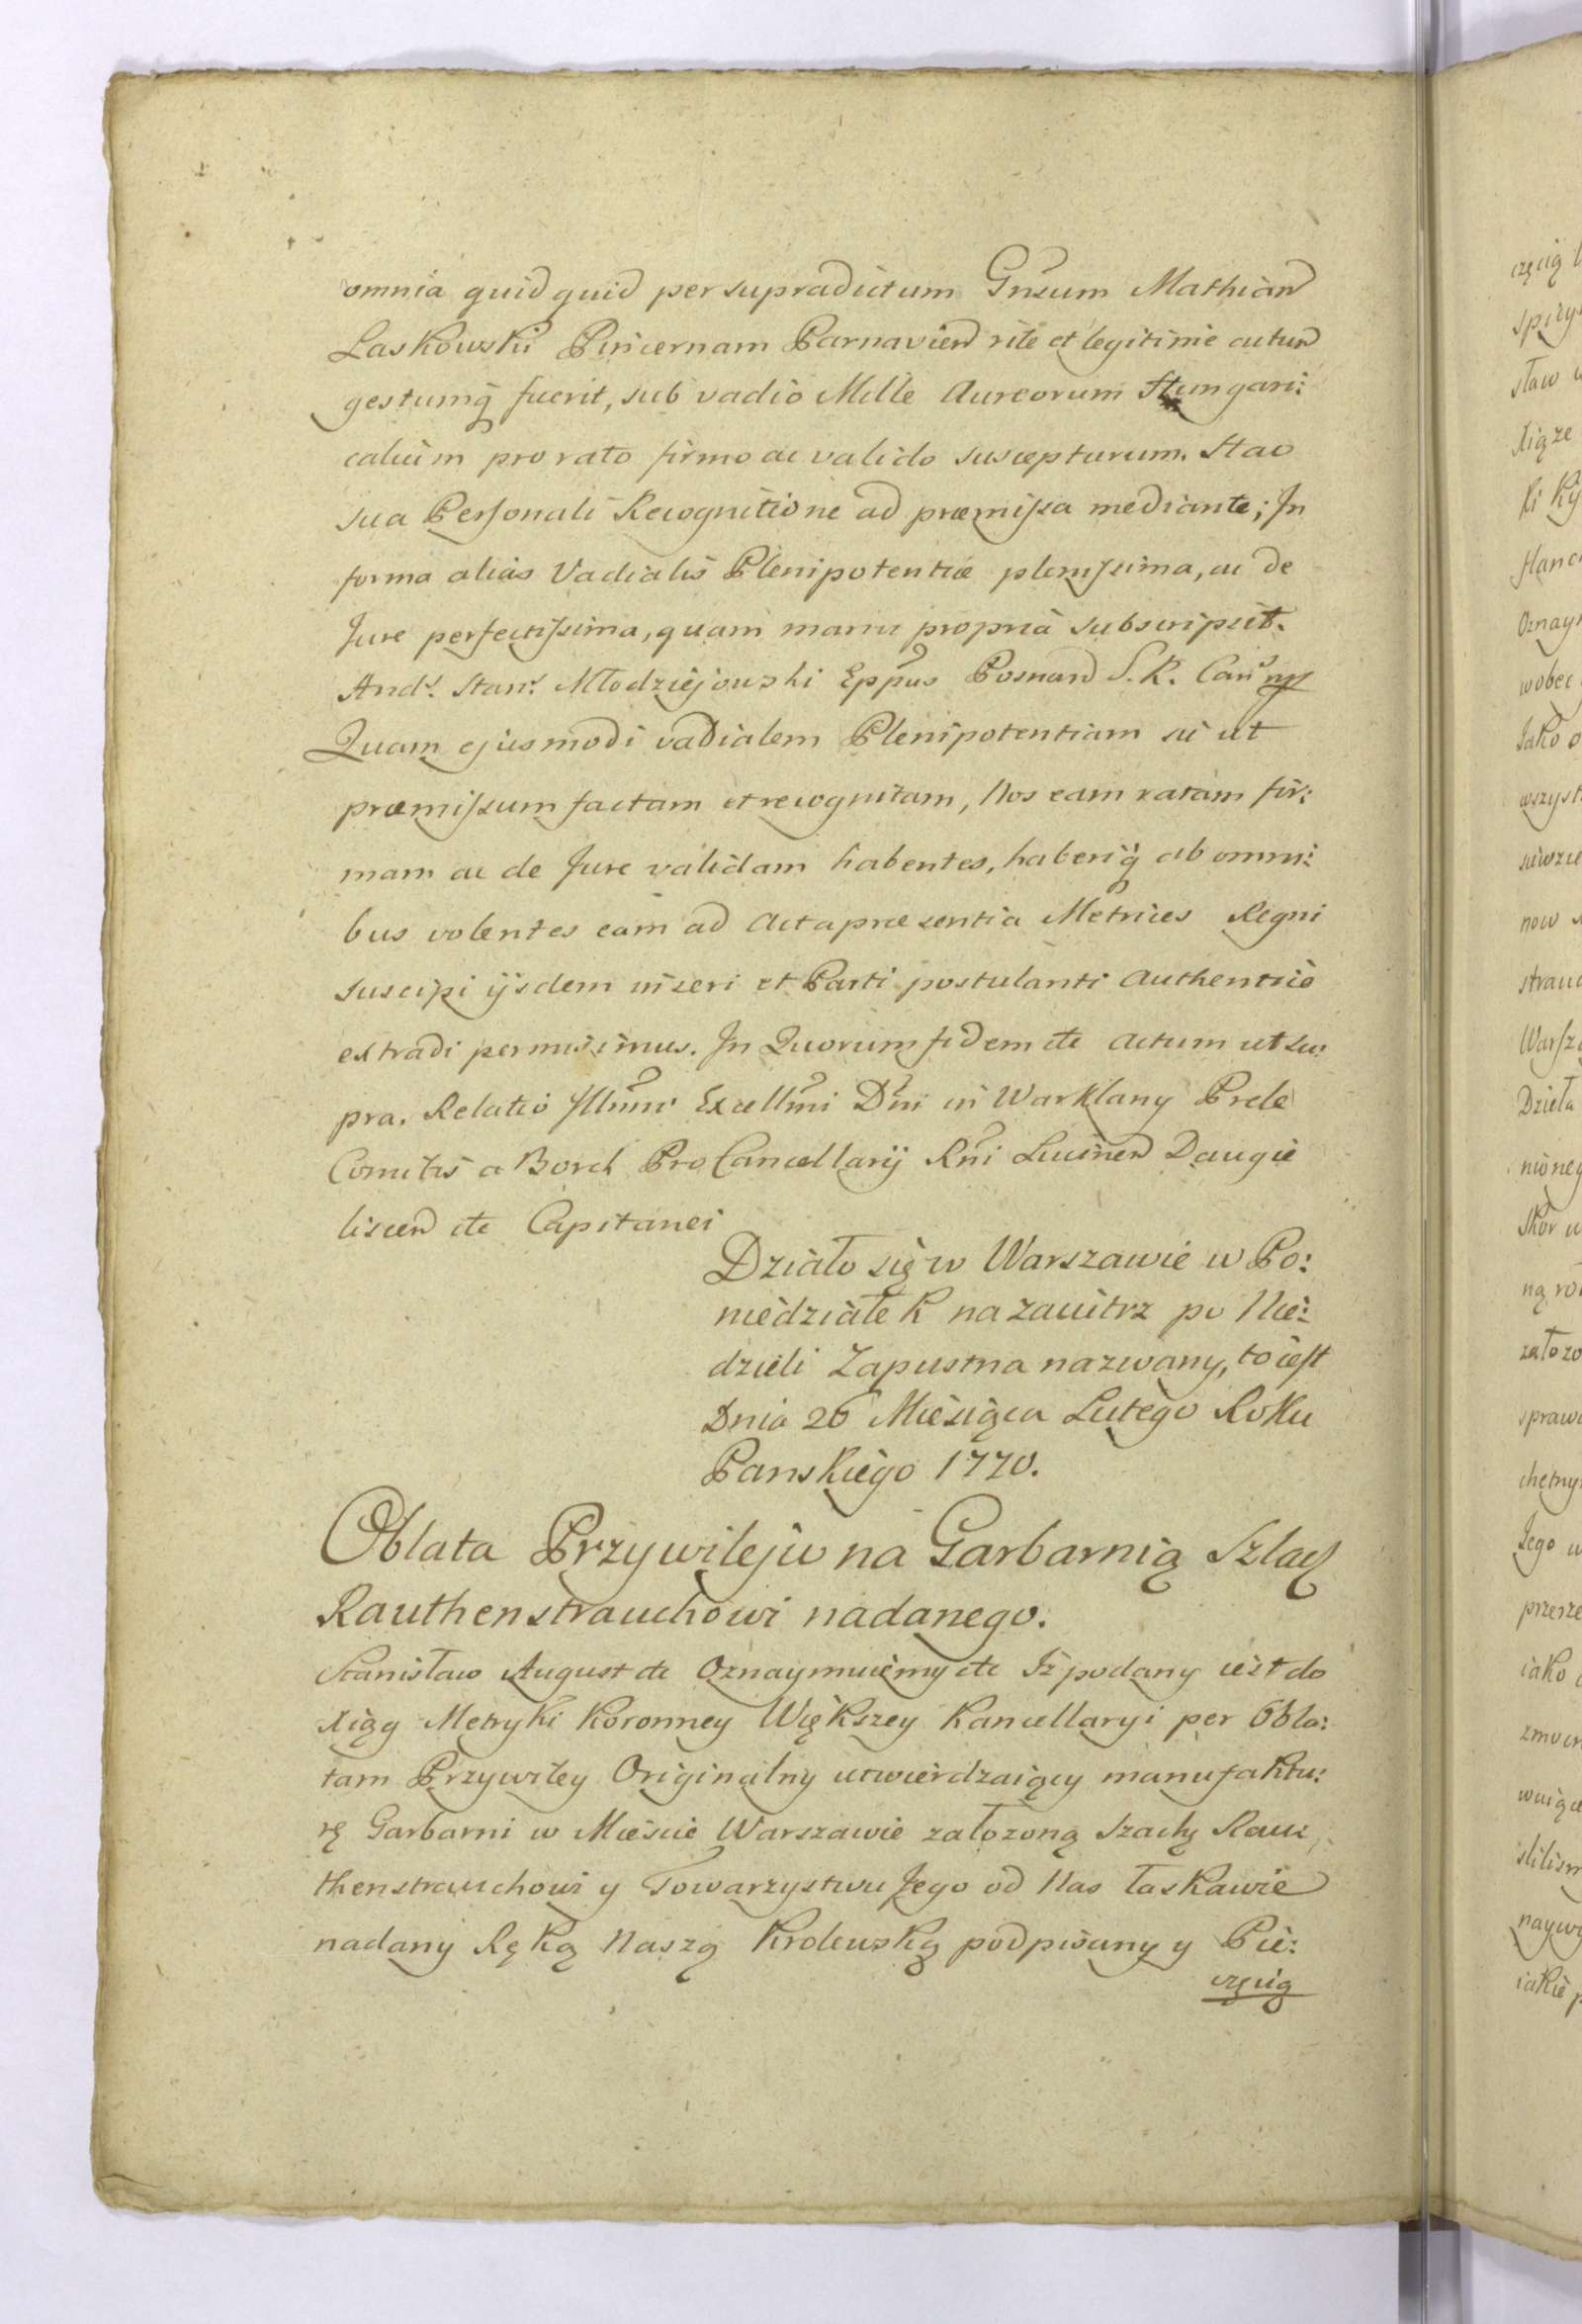 omnia quidquid per supradictum Gnsum Mathiam
Laskowski Pincernam Parnavien rite et legitime actum
gestumq fuerit, sub vadio Mille Aureorum Hungari:
calium pro rato firmo ac valido suscepturum. Hac
sua Personali Recognitione ad præmissa mediante; In
forma alias Vadialis Plenipotentiæ plenissima, ac de
Jure perfectissima, quam manu propria subscripsit.
Andr. Stans. Młodziejowski Eppus Posnan S. R. Can mp
Quam ejusmodi vadialem Plenipotentiam sic ut
præmissum factam et recognitam, Nos eam ratam fir:
mam ac de Jure validam habentes, haberiq ab omni:
bus volentes eam ad Acta præsentia Metrices Regni
suscipi ijsdem inseri et Parti postulanti Authentice
extradi permisimus. In Quorum fidem etc Actum ut su:
pra. Relatio Illmi Excellmi Dni in Warklany Prele
Comitis a Borch Pro Cancellarij Rni Lucinen Daugie
liscen etc Capitanei
Działo się w Warszawie w Po:
niedziałek nazaiutrz po Nie:
dzieli Zapustna nazwany, to iest
Dnia 26 Miesiąca Lutego Roku
Panskiego 1770.
Oblata Przywileju na Garbarnią Szlach
Rauthenstrauchowi nadanego.
Stanisław August etc Oznaymuiemy etc Iż podany iest do
Xiąg Metryki Koronney Większey Kancellaryi per Obla:
tam Przywiley Originalny utwierdzaiący manufaktu:
rę Garbarni w Mieście Warszawie założoną Szachę Rau
thenstrauchowi y Towarzystwu Jego od Nas łaskawie
nadany Ręką Naszą Krolewską podpisany y Pie:
częcią